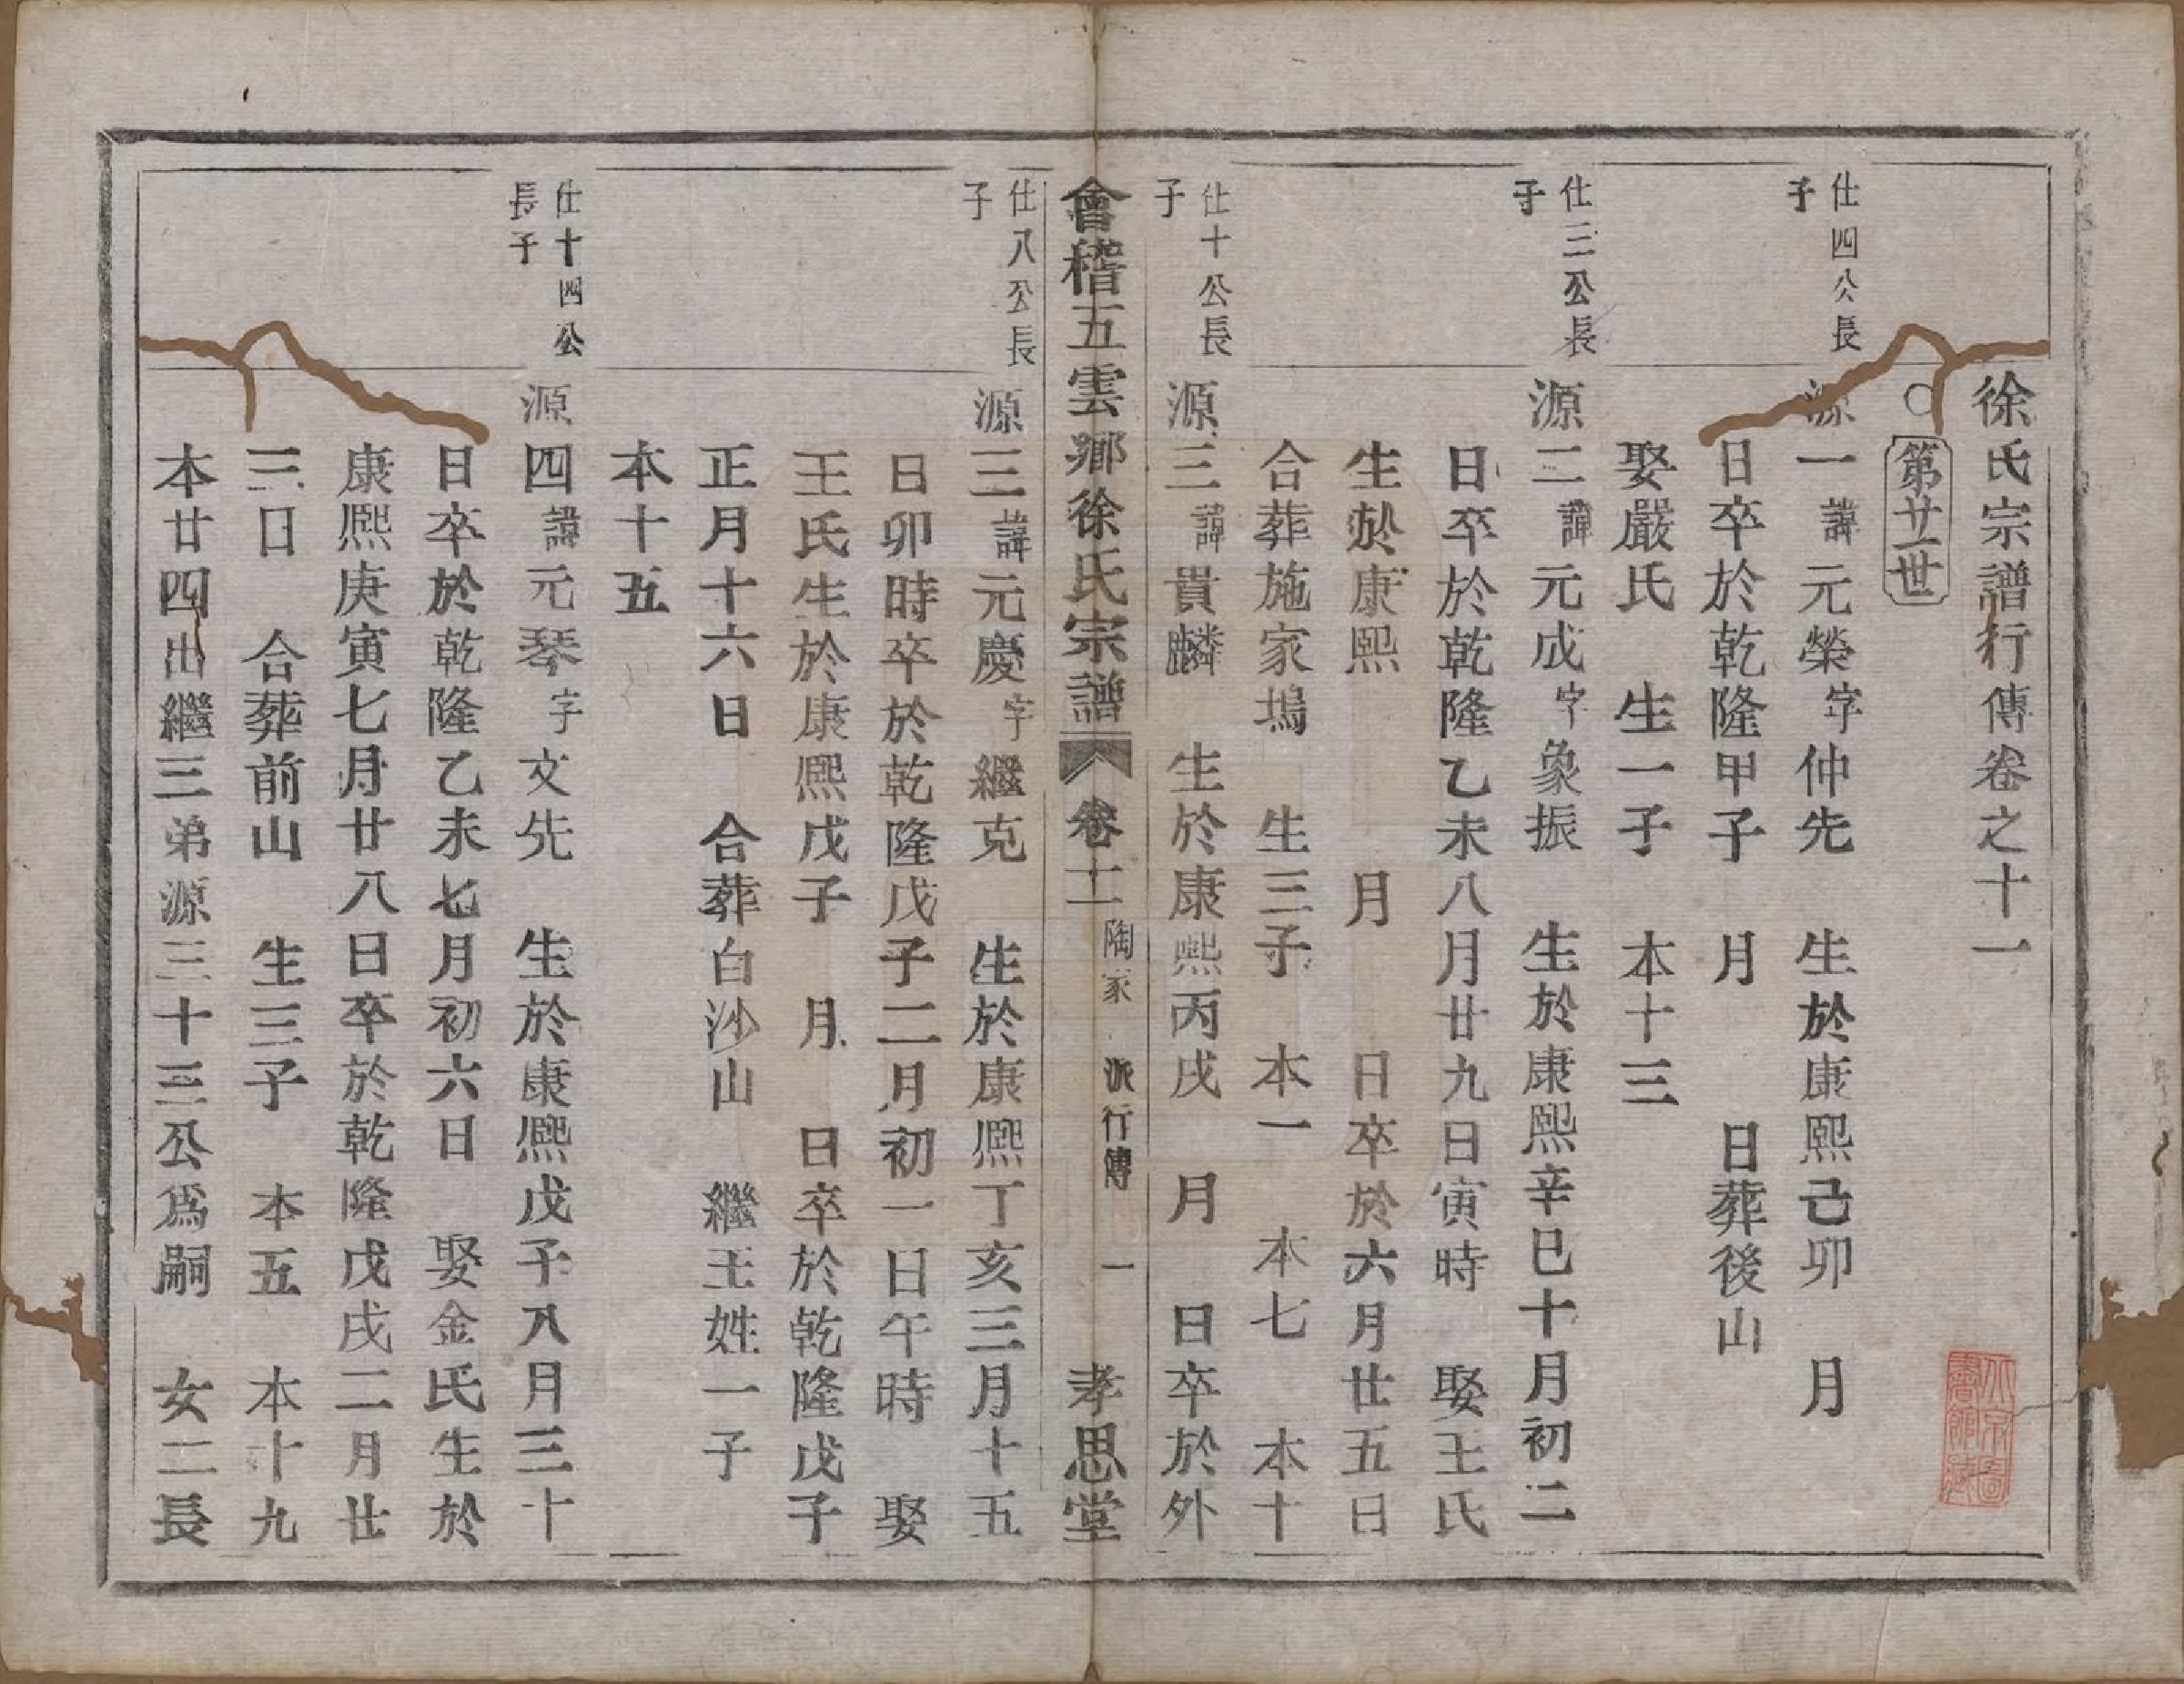 徐氏宗譜行傳卷之十一
○第廿一世
仕四公長子
源一諱元榮字仲先　生於康熙己卯　月
日卒於乾隆甲子　月　日葬後山
娶嚴氏　生一子　本十三
仕三公長子
源二諱元成字象振　生於康熙辛巳十月初二
日卒於乾隆乙未八月廿九日寅時　娶王氏
生於康熙　月　日卒於六月廿五日
合葬施家塢　生三子　本一　本七　本十
仕十公長子
源三諱貴麟　生於康熙丙戌　月　日卒於外
會稽五雲鄉徐氏宗譜　卷十一　陶家　派行傳　一　孝思堂
仕八公長子
源三諱元慶字繼克　生於康熙丁亥三月十五
日卯時卒於乾隆戊子二月初一日午時　娶
王氏生於康熙戊子　月　日卒於乾隆戊子
正月十六日　合葬白沙山　繼王姓一子
本十五
仕十四公長子
源四諱元琴字文先　生於康熙戊子八月三十
日卒於乾隆乙未七月初六日　娶金氏生於
康熙庚寅七月廿八日卒於乾隆戊戌二月廿
三日　合葬前山　生三子　本五　本十九
本廿四出繼三弟源三十三公爲嗣　女二長